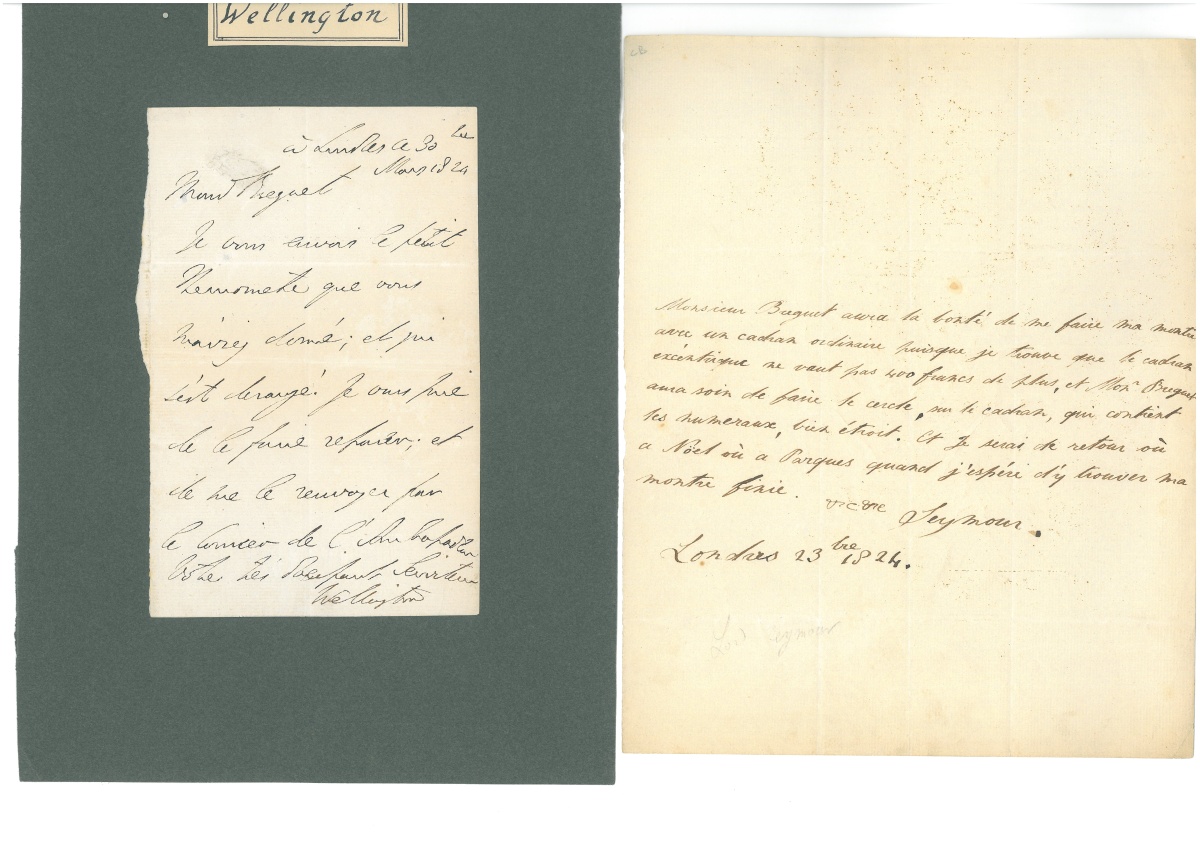 Wellington
à Londres ce 30
Mars 1824
Monsr Breguet
Je vous envois le petit
thermometre que vous
m'aviez donné; et qui
s'est derangé. Je vous prie
de le faire reparer; et
de me le renvoyer par
le Courier de l'Ambassadeur
Votre très
Wellington
CB
Monsieur Breguet aura la bonté de me faire ma montre
avec un cadran ordinaire puisque je trouve que le cadran
excéntrique ne vaut pas 400 francs de plus, et Monr Breguet
aura soin de faire le cercle, sur le cadran, qui contient
les numeraux, bien étroit. Et Je serai de retour où
a Nöel où a Parques quand j'espéré d'y trouver ma
montre finie.
Seymour.
Londres 23 bre 1824.
Lord Seymour